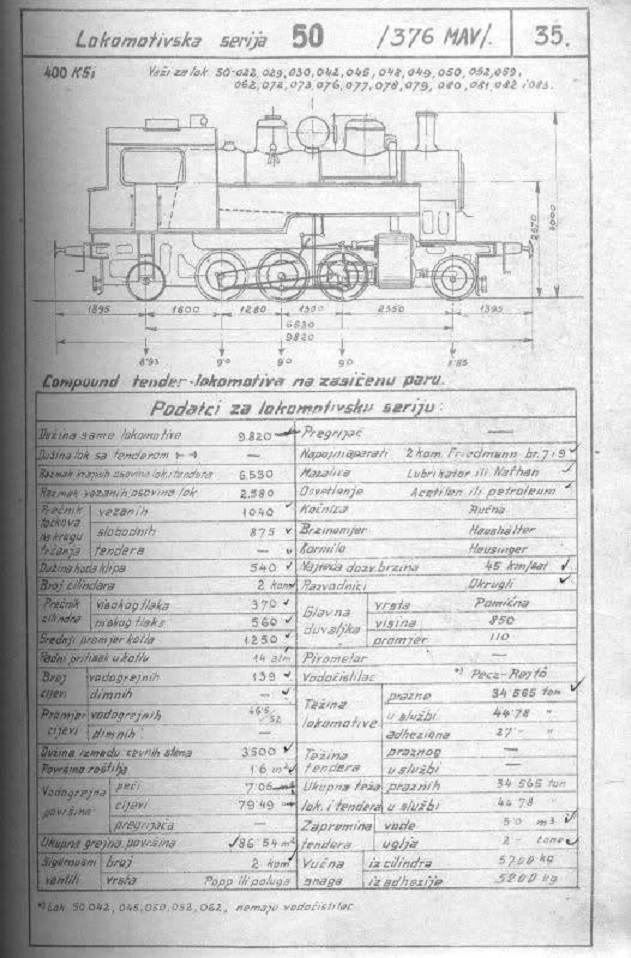 Lokomotivska serija 50 /376 MAV/. 35.
400 KSi Važi za lok 50-022,029,030,042,045,048,049,050,052,059,
062,072,073,076,077,078,079, 080,081,082 i 083.
2670 4000
1895 1600 1280 1300 2350 1395
6530
9820
9·0 9·0 9·0
Compound tender-lokomotiva na zasićenu paru.
Podatci za lokomotivsku seriju:
Dužina same lokomotive 9.820 Pregrijač —
Dužina lok sa tenderom — Napojni aparati 2 kom. Friedmann br. 7 i 9
Razmak krajnjih osovina lok. i tendera 6.530 Mazalica Lubrikator ili Nathan
Razmak vezanih osovina lok. 2.580 Osvetlenje Acetilen ili petroleum
Prečnik točkova na krugu trčanja vezanih 1040 Kočnica Ručna
slobodnih 875 Brzinomjer Haushälter
tendera — Kormilo Heusinger
Dužina hoda klipa 540 Najveća dozv. brzina 45 km/sat
Broj cilindara 2 kom Razvodnici Okrugli
Prečnik cilindra visokog tlaka 370 Glavna duvaljka vrsta Pomična
niskog tlaka 560 visina 850
Srednji promjer kotla 1250 promjer 110
Radni pritisak u kotlu 14 atm Pirometar —
Broj cijevi vodogrejnih 139 Vodočistilac *) Pecz-Rejtö
dimnih — Težina lokomotive prazne 34 565 ton
Promjer cijevi vodogrejnih 46·5/52 u službi 44·78 "
dimnih — adheziona 27·- "
Dužina između cevnih stena 3500 Težina tendera praznog —
Površina roštilja 1·6 m² u službi —
Vodogrejna površina peći 7·05 m² Ukupna teža lok. i tendera praznih 34 565 ton
cijevi 79·49 u službi 44·78 "
pregrijača — Zapremina tendera vode 5·0 m3
Ukupna grejna površina 86·54 m² uglja 2·- tone
Sigurnosni ventili broj 2 kom Vučna snaga iz cilindra 5700 kg
vrsta Popp ili poluga iz adhezije 5200 kg
*) Lok 50.042, 045,050,052,062, nemaju vodočistilac